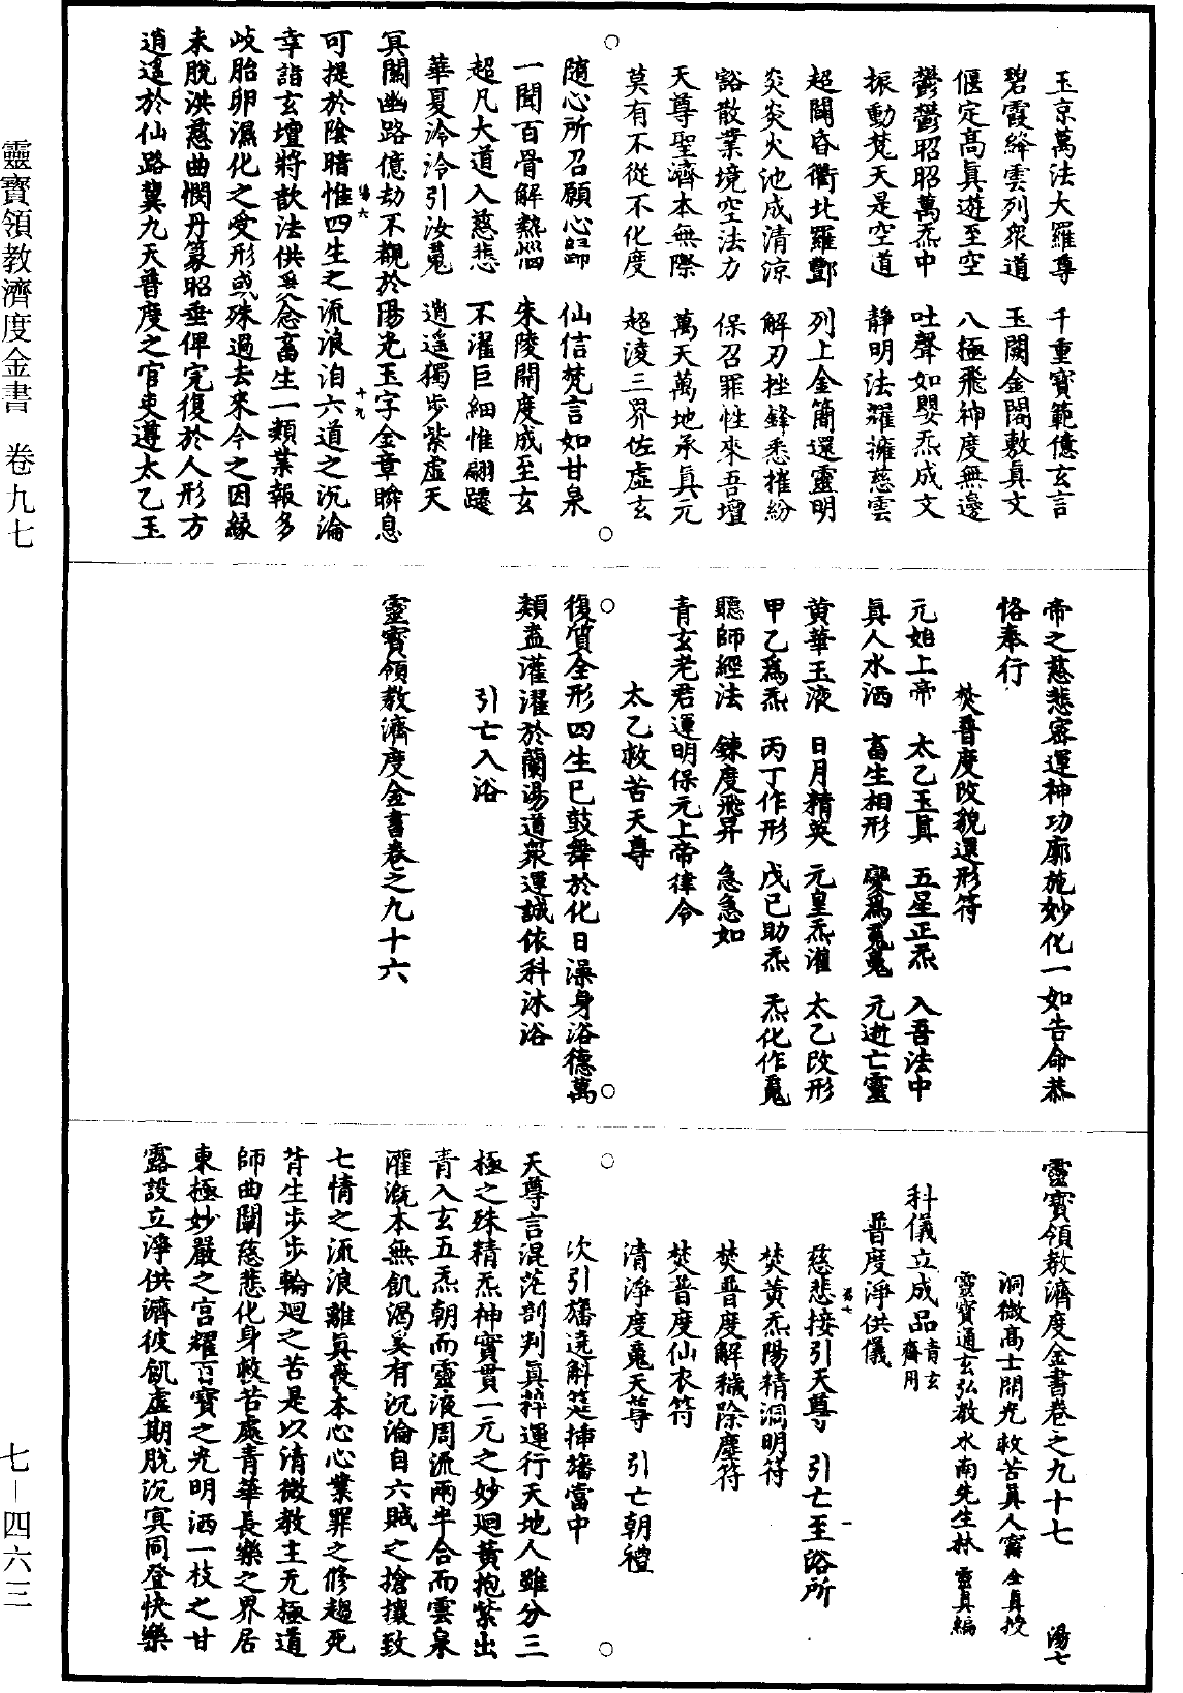 靈寶領教濟度金書　卷九七
七－四六三
玉京萬法大羅尊　千重寶範億玄言
碧霞絳雲列衆道　玉闕金閣敷真文
偃定高真遊至空　八極飛神度無邊
鬱鬱昭昭萬炁中　吐聲如嬰炁成文
振動梵天是空道　靜明法躍擁慈雲
超闢昏衢北羅酆　列上金簡還靈明
炎炎火池成清涼　解刃挫鋒悉摧紛
豁散業境空法方　保召罪性來吾壇
天尊聖濟本無際　萬天萬地承真元
莫有不從不化度　超淩三界佐虛玄
隨心所召願心歸　仙信梵言如甘泉
一聞百骨解熱惱　朱陵開度成至玄
超凡大道入慈悲　不濯巨細惟翩躚
華夏泠泠引汝䰟　逍遥獨步紫虛天
冥關幽路億劫不覩於陽光玉字金章瞬息
可提於陰暗惟四生之流浪洎六道之沉淪
湯六
十九
幸詣玄壇將歆法供爰念畜生一類業報多
岐胎卵濕化之受形或殊過去來今之因緣
未脫洪慈曲憫丹篆昭垂俾完復於人形方
逍遥於仙路冀九天普度之官吏遵太乙玉
帝之慈悲密運神功廓施妙化一如告命恭
恪奉行
焚普度改貌還形符
元始上帝　太乙玉真　五星正炁　入吾法中
真人水洒　畜生相形　變爲䰟䰟　元逝亡靈
黄華玉液　日月精英　元皇炁灌　太乙改形
甲乙爲炁　丙丁作形　戊己助炁　炁化作䰟
聽師經法　鍊度飛昇　急急如
青玄老君運明保元上帝律令
太乙救苦天尊
復質全形四生已鼓舞於化日澡身浴德萬
類盍灌濯於蘭湯道衆運誠依科沐浴
引亡入浴
靈寶領教濟度金書卷之九十六
靈寶領教濟度金書卷之九十七　湯七
洞微高士開光救苦真人甯　全真授
靈寶通玄弘教水南先生林　靈真編
科儀立成品青玄齋用
普度淨供儀
慈悲接引天尊　引亡至浴所
湯七
一
焚黄炁陽精洞明符
焚普度解穢除塵符
焚普度仙衣符
清淨度䰟天尊　引亡朝禮
次引旛遶斛筵揷旛當中
天尊言混茫剖判真粹運行天地人雖分三
極之殊精炁神實貫一元之妙廻黄抱紫出
青入玄五炁朝而靈液周流兩半合而雲泉
灌溉本無飢渴奚有沉淪自六賊之搶攘致
七情之流浪離真喪本心心業罪之修趨死
背生步步輪廻之苦是以清微教主无極道
師曲闡慈悲化身救苦處青華長樂之界居
東極妙嚴之宮耀百寶之光明洒一枝之甘
露設立淨供濟彼飢虛期脫沉冥同登快樂